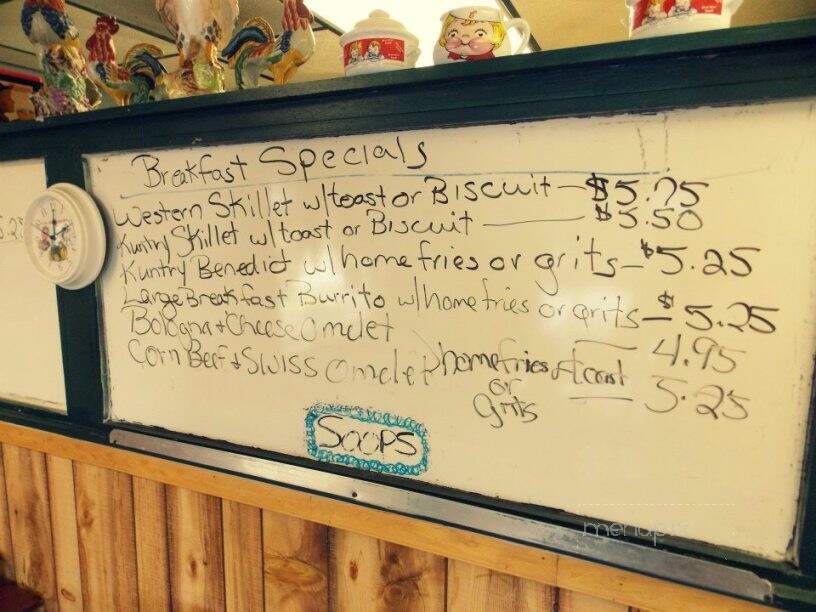 Breakfast Specials
Western Skillet w/toast or Biscuit — $5.75
Kuntry Skillet w/toast or Biscuit — $5.50
Kuntry Benedict w/home fries or grits — $5.25
Large Breakfast Burrito w/home fries or grits — $5.25
Bologna + Cheese Omelet — 4.95
Corn Beef + Swiss Omelet > home fries + toast — 5.25
or
grits
Soups